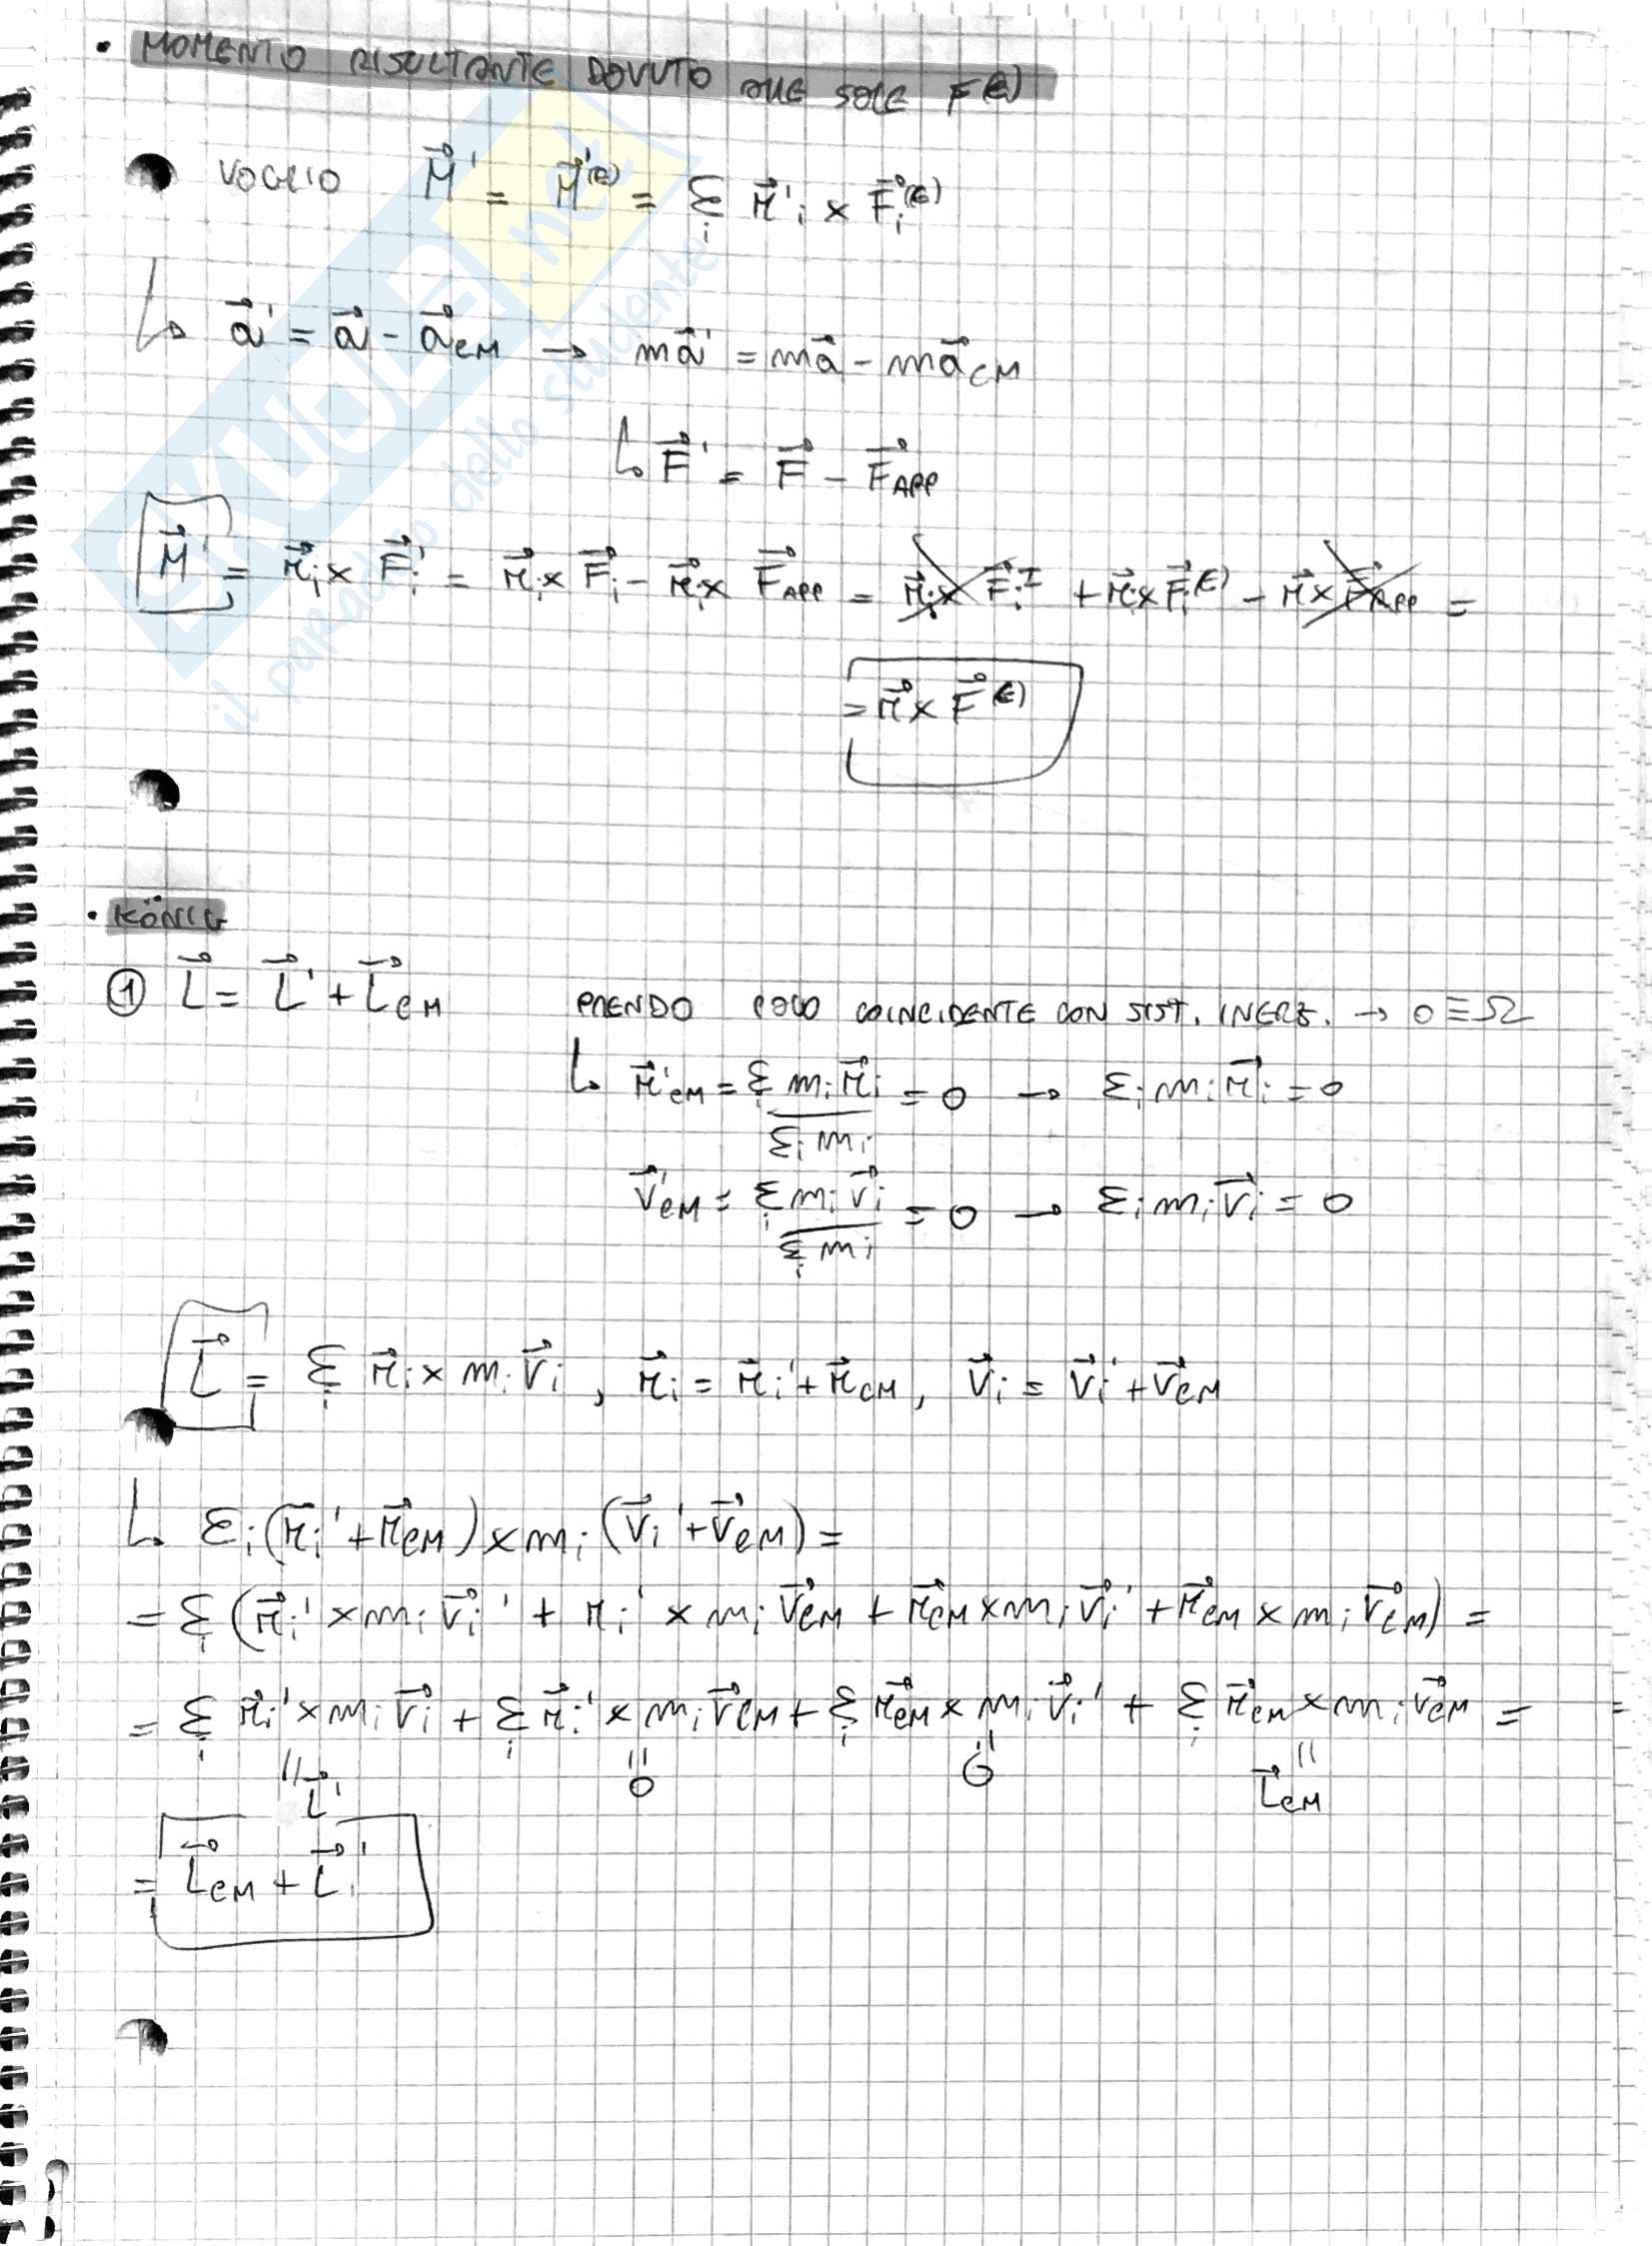 • MOMENTO RISULTANTE DOVUTO ALLE SOLE F(E)
VOGLIO M⃗' = M⃗'(E) = Σi r⃗'i × F⃗i(E)
↳ a⃗' = a⃗ - a⃗CM → ma⃗' = ma⃗ - ma⃗CM
↳ F⃗' = F⃗ - F⃗APP
M⃗' = r⃗i × F⃗i' = r⃗i × F⃗i - r⃗i × F⃗APP = r⃗i × F⃗iI + r⃗i × F⃗i(E) - r⃗ × F⃗APP =
= r⃗ × F⃗(E)
• KÖNIG
① L⃗ = L⃗' + L⃗CM PRENDO POLO COINCIDENTE CON SIST. INERZ. → O ≡ Ω
↳ r⃗'CM = Σi mi r⃗i / Σi mi = 0 → Σi mi r⃗i = 0
v⃗'CM = Σi mi v⃗i / Σi mi = 0 → Σi mi v⃗i = 0
L⃗ = Σi r⃗i × mi v⃗i , r⃗i = r⃗i' + r⃗CM , v⃗i = v⃗i' + v⃗CM
↳ Σi (r⃗i' + r⃗CM) × mi (v⃗i' + v⃗CM) =
= Σi (r⃗i' × mi v⃗i' + ri' × mi v⃗CM + r⃗CM × mi v⃗i' + r⃗CM × mi v⃗CM) =
= Σi r⃗i' × mi v⃗i + Σi r⃗i' × mi v⃗CM + Σi r⃗CM × mi v⃗i' + Σi r⃗CM × mi v⃗CM = =
" L⃗' " 0 " 0 " L⃗CM
= L⃗CM + L⃗'
SKUOLA.net
il paradiso dello studente